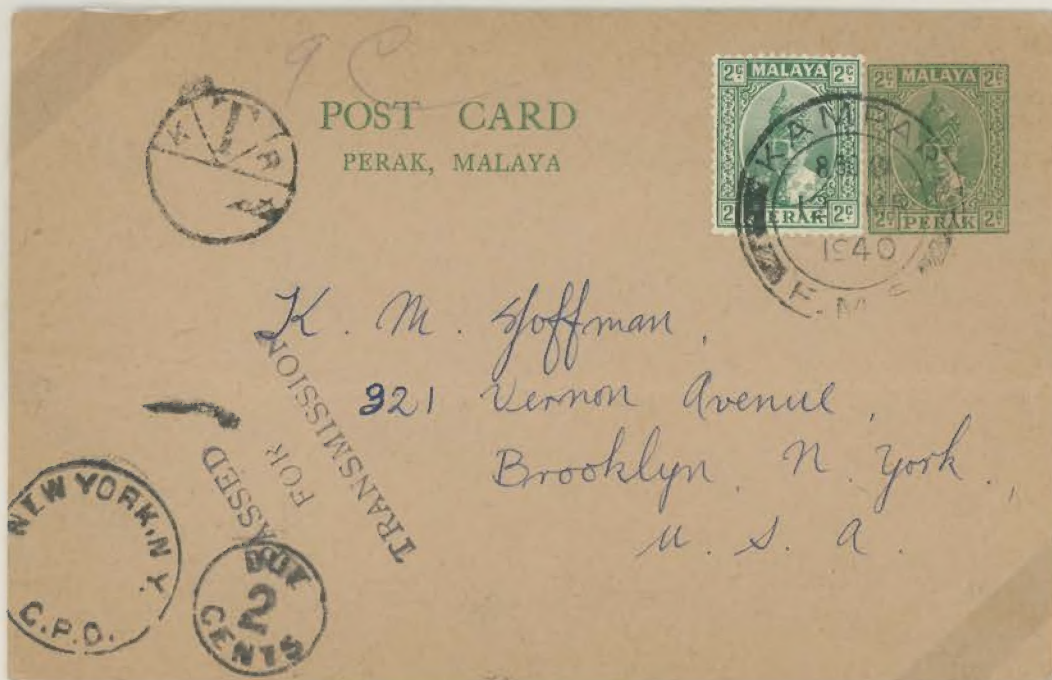 9 C
POST CARD
PERAK, MALAYA
2c. MALAYA 2c.
2 PERAK 2c.
2c. MALAYA 2c.
2c. PERAK 2c.
K T R
KAMPAR
1940
F.M.S
K. M. Hoffman,
921 Vernon Avenue,
Brooklyn, N. York,
U. S. A.
PASSED
FOR
TRANSMISSION
NEW YORK, N.Y.
G.P.O.
DUE
2
CENTS